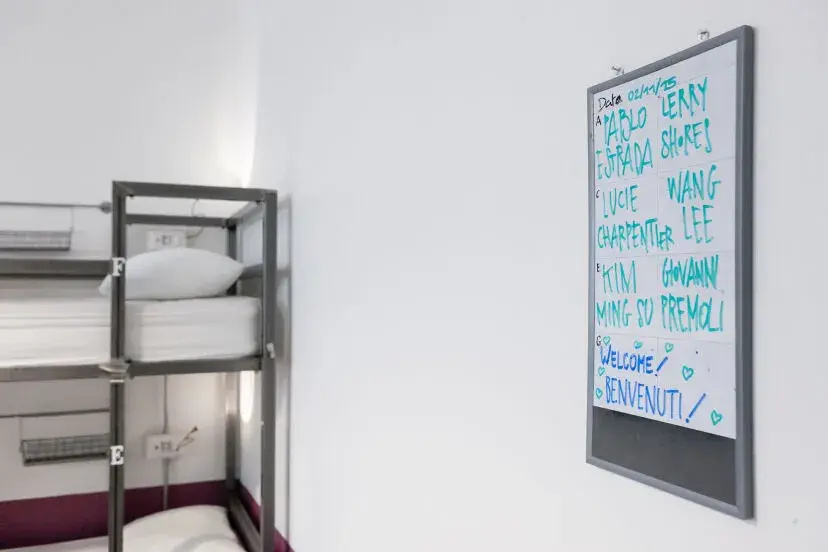 Data 02/11/15
A PABLO ESGRADA
LERRY SHORES
C LUCIE CHARPENTIER
WANG LEE
E KIM MING SU
GIOVANNI PREMOLI
G WELCOME!
BENVENUTI!
F
E